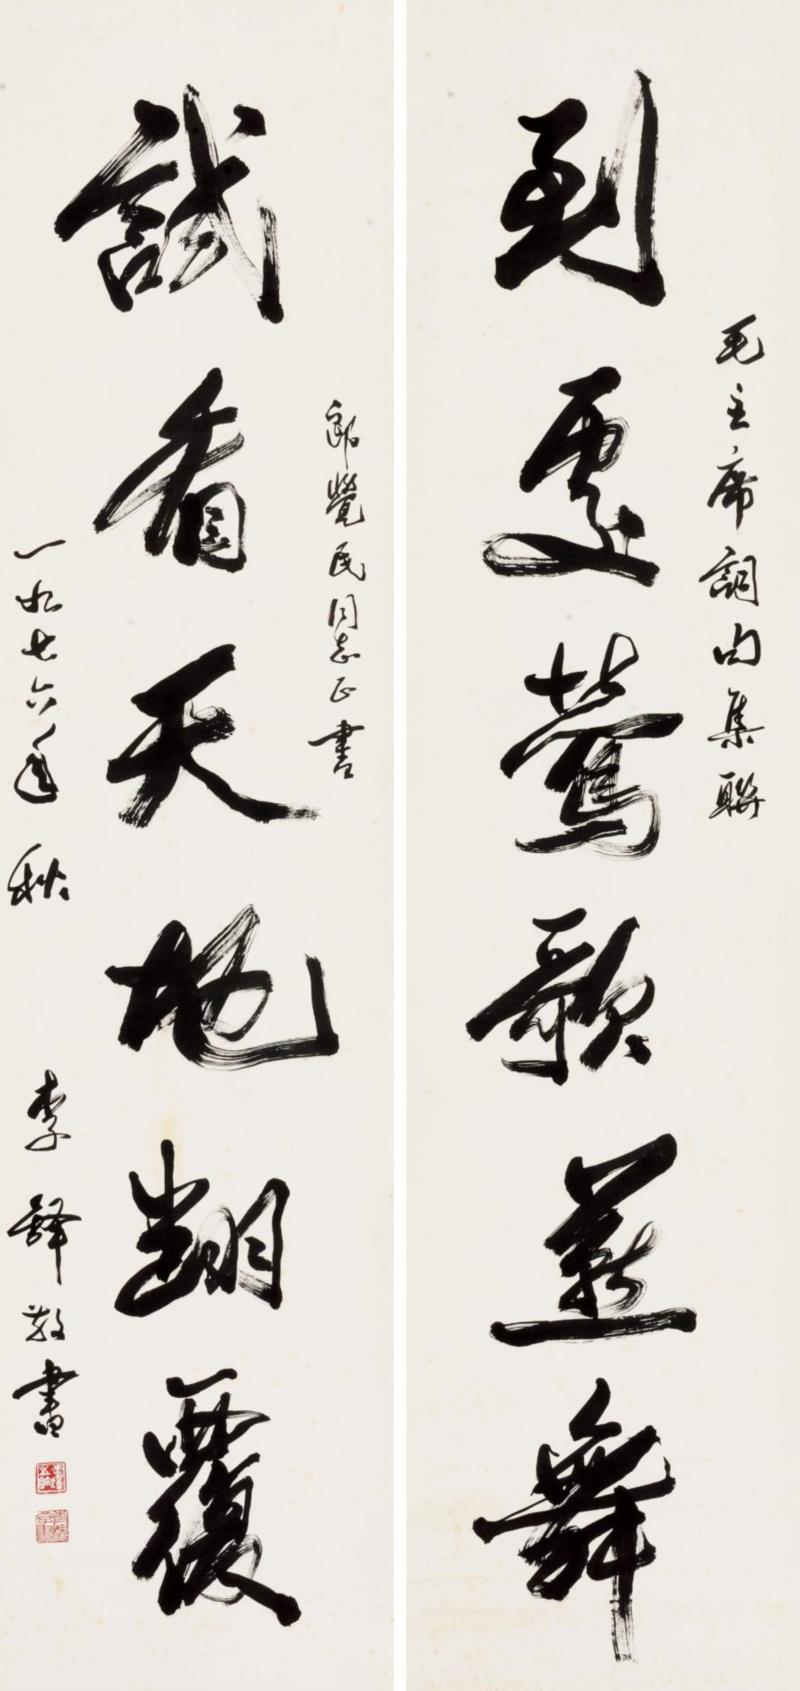 毛主席詞句集聯
到處莺歌燕舞
郎覺民同志正書
試看天地翻覆
一九七六年秋
李鐸敬書